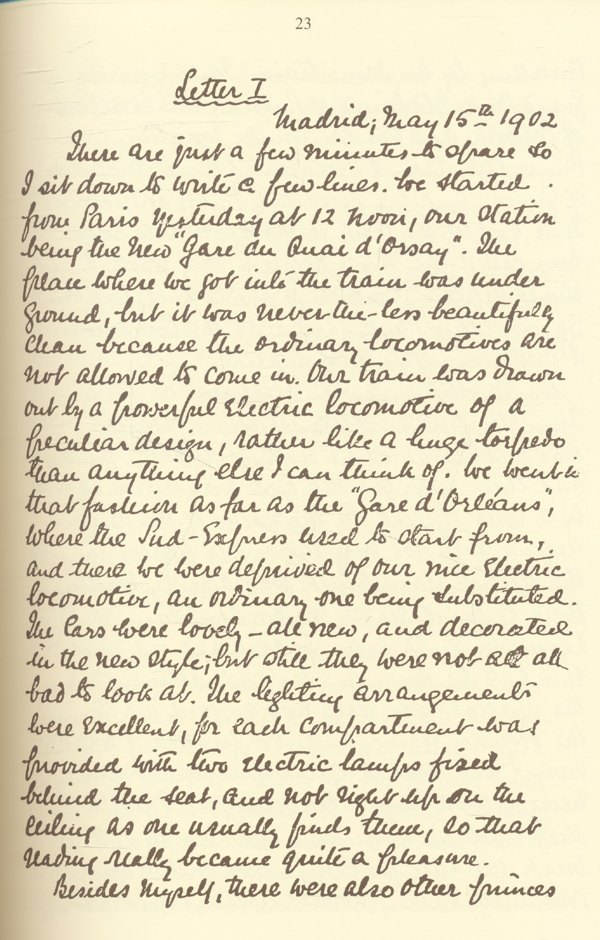 23
Letter I
Madrid, May 15th 1902
There are just a few minutes to spare so
I sit down to write a few lines. We started
from Paris yesterday at 12 noon, our station
being the new "Gare du Quai d'Orsay". The
place where we got into the train was under
ground, but it was never-the-less beautifully
clean because the ordinary locomotives are
not allowed to come in. Our train was drawn
out by a powerful electric locomotive of a
peculiar design, rather like a huge torpedo
than anything else I can think of. We went in
that fashion as far as the "Gare d'Orléans",
where the Sud-Express used to start from,
and there we were deprived of our nice electric
locomotive, an ordinary one being substituted.
The cars were lovely – all new, and decorated
in the new style; but still they were not at all
bad to look at. The lighting arrangements
were excellent, for each compartment was
provided with two electric lamps fixed
behind the seat, and not right up on the
ceiling as one usually finds them, so that
reading really became quite a pleasure.
Besides myself, there were also other princes